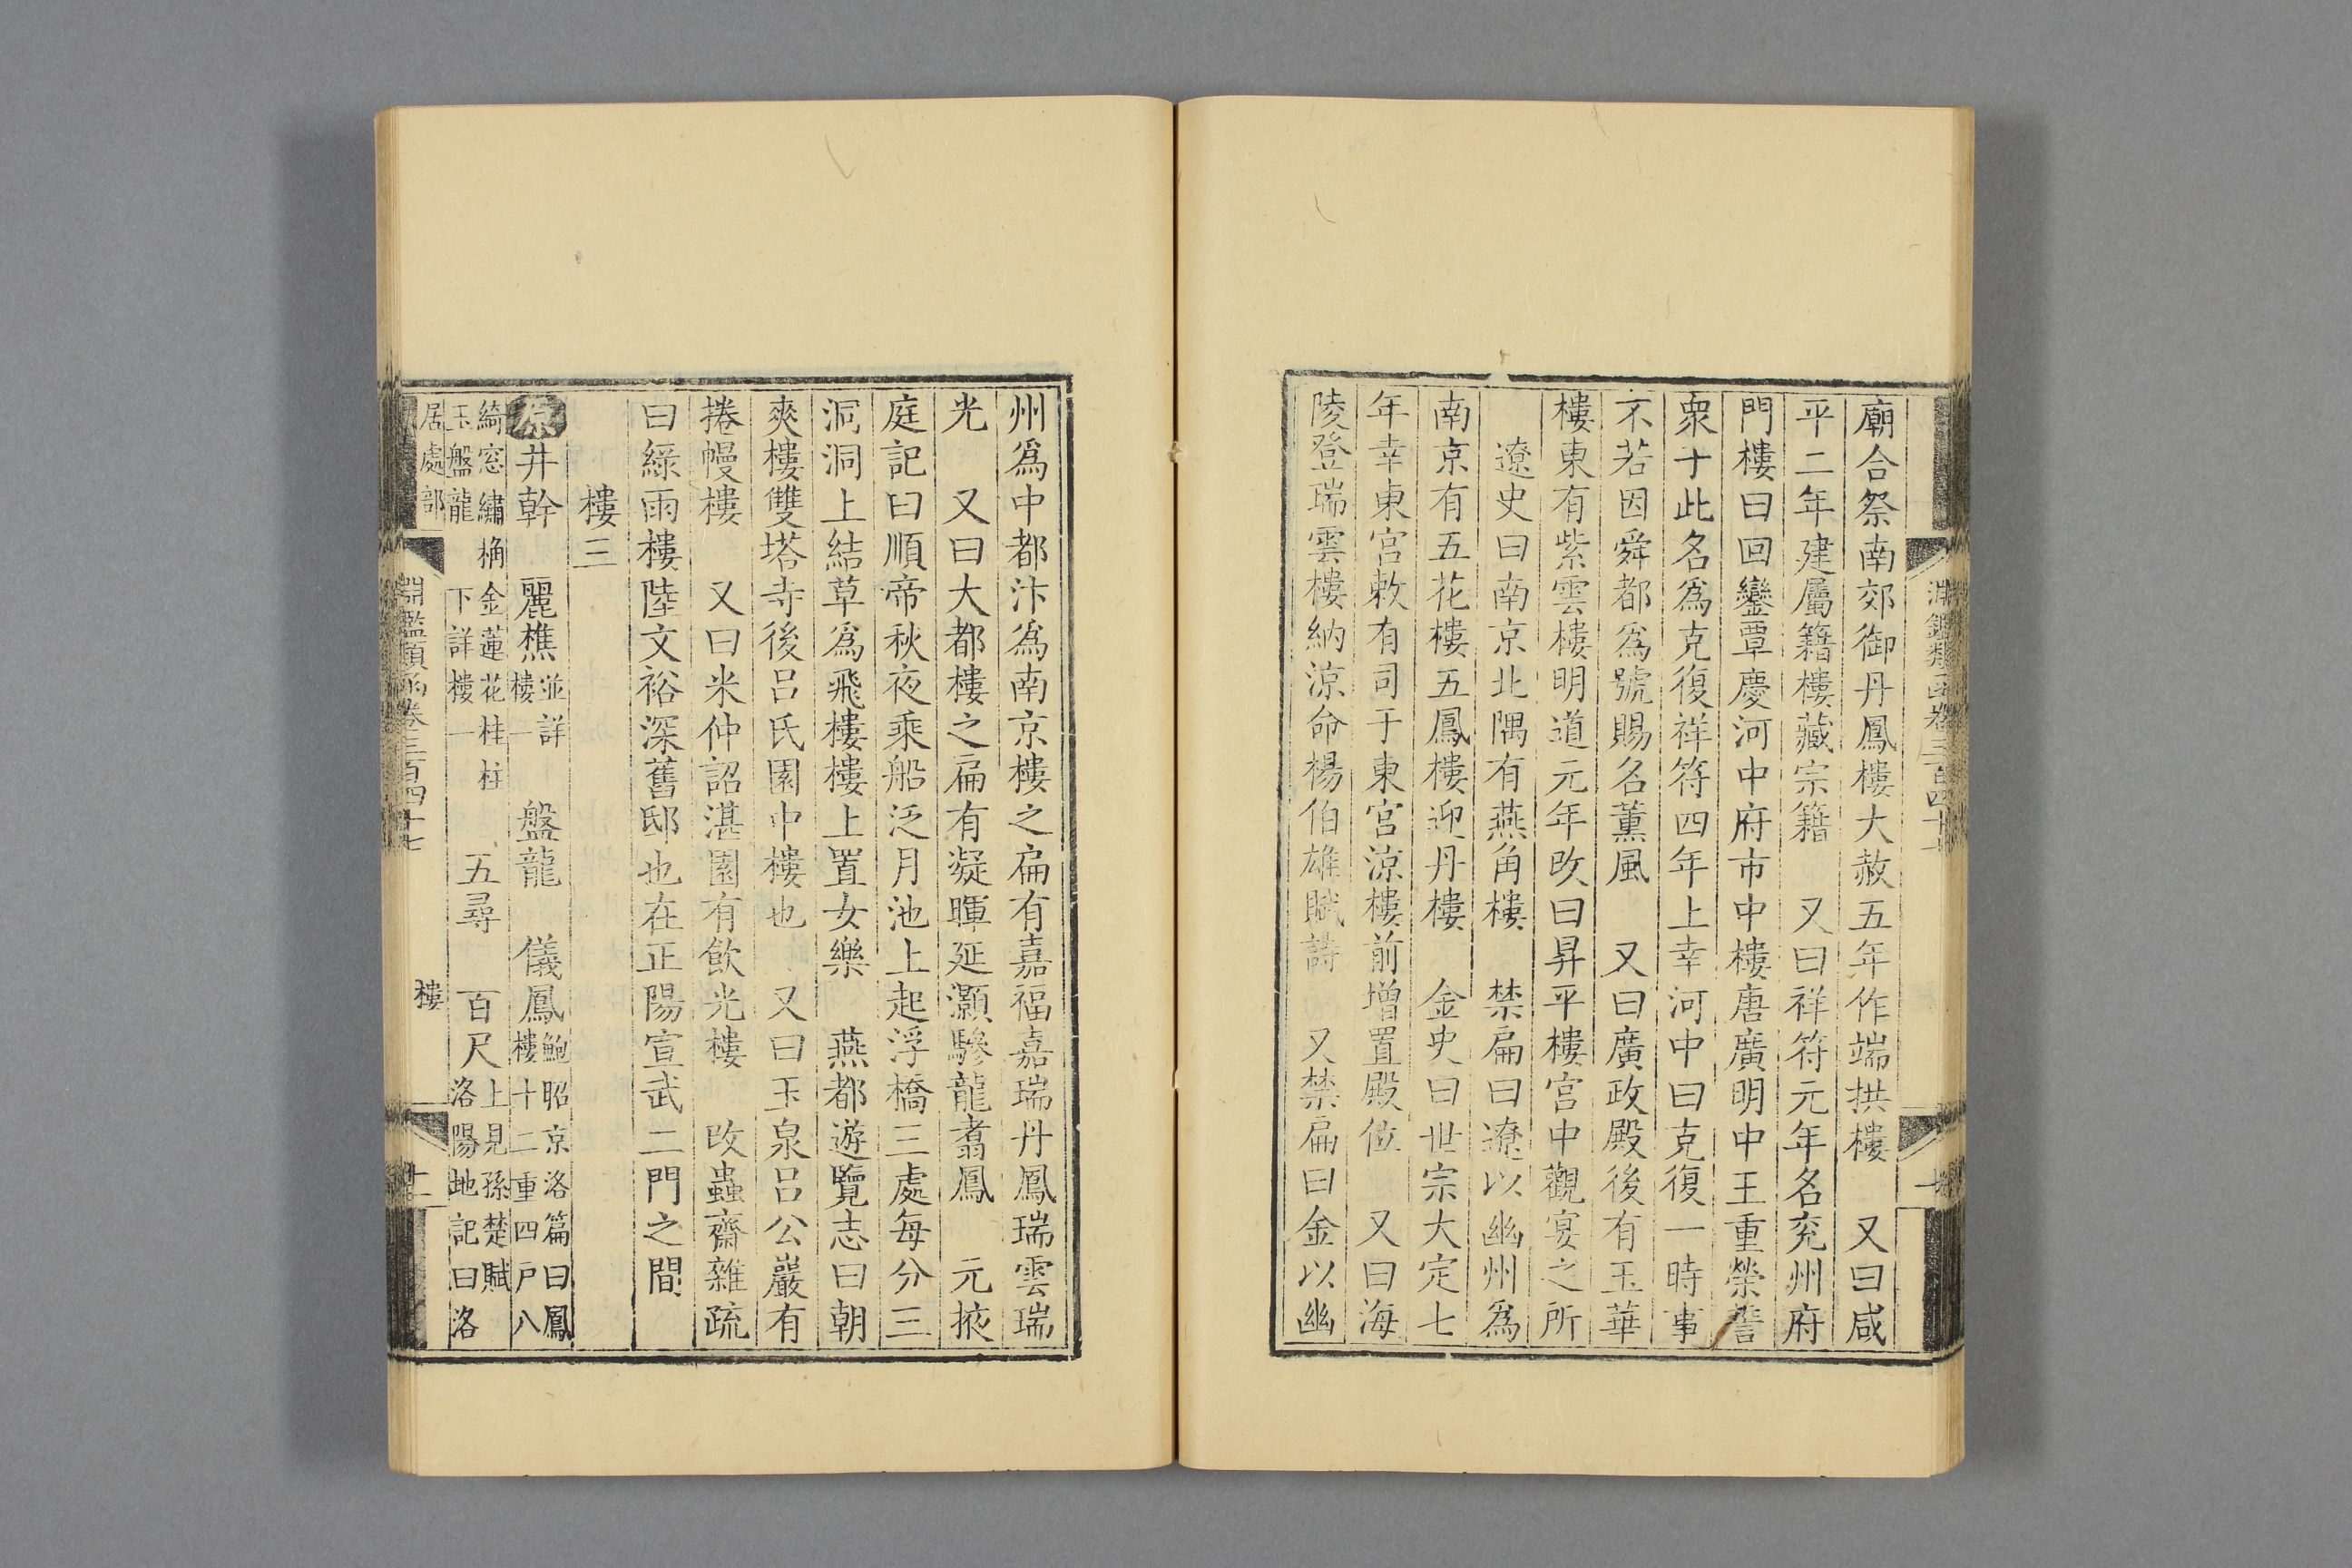 廟合祭南郊御丹鳳樓大赦五年作端拱樓　又曰咸
平二年建屬籍樓藏宗籍　又曰祥符元年名兖州府
門樓曰回鑾覃慶河中府市中樓唐廣明中王重榮誓
衆于此名爲克復祥符四年上幸河中曰克復一時事
不若因舜都爲號賜名薰風　又曰廣政殿後有玉華
樓東有紫雲樓明道元年改曰昇平樓宫中觀宴之所
遼史曰南京北隅有燕角樓　禁扁曰遼以幽州爲
南京有五花樓五鳳樓迎丹樓　金史曰世宗大定七
年幸東宫敕有司于東宫涼樓前增置殿位　又曰海
陵登瑞雲樓納涼命楊伯雄賦詩　又禁扁曰金以幽
州爲中都汴爲南京樓之扁有嘉福嘉瑞丹鳳瑞雲瑞
光　又曰大都樓之扁有凝暉延灝驂龍翥鳳　元掖
庭記曰順帝秋夜乘船泛月池上起浮橋三處每分三
洞洞上結草爲飛樓樓上置女樂　燕都遊覽志曰朝
爽樓雙塔寺後吕氏園中樓也　又曰玉泉吕公巖有
捲幔樓　又曰米仲詔湛園有飲光樓　改蟲齋雜疏
曰緑雨樓陸文裕深舊邸也在正陽宣武二門之間
樓三
原井幹　麗樵並詳樓一　盤龍　儀鳳鮑昭京洛篇曰鳳樓十二重四戸八
綺窓繡桷金蓮花桂柱玉盤龍下詳樓一　五尋　百尺上見孫楚賦洛陽地記曰洛
居處部
淵鑑類函卷三百四十七
樓
十一